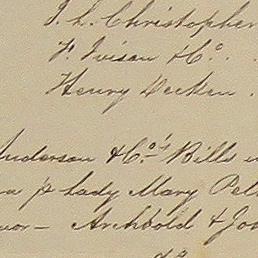 J. L. Christopher
F. Ivison & Co.
Henry Deeken
Anderson & Co.'s Bills
p Lady Mary Pel
Archbold & Jo